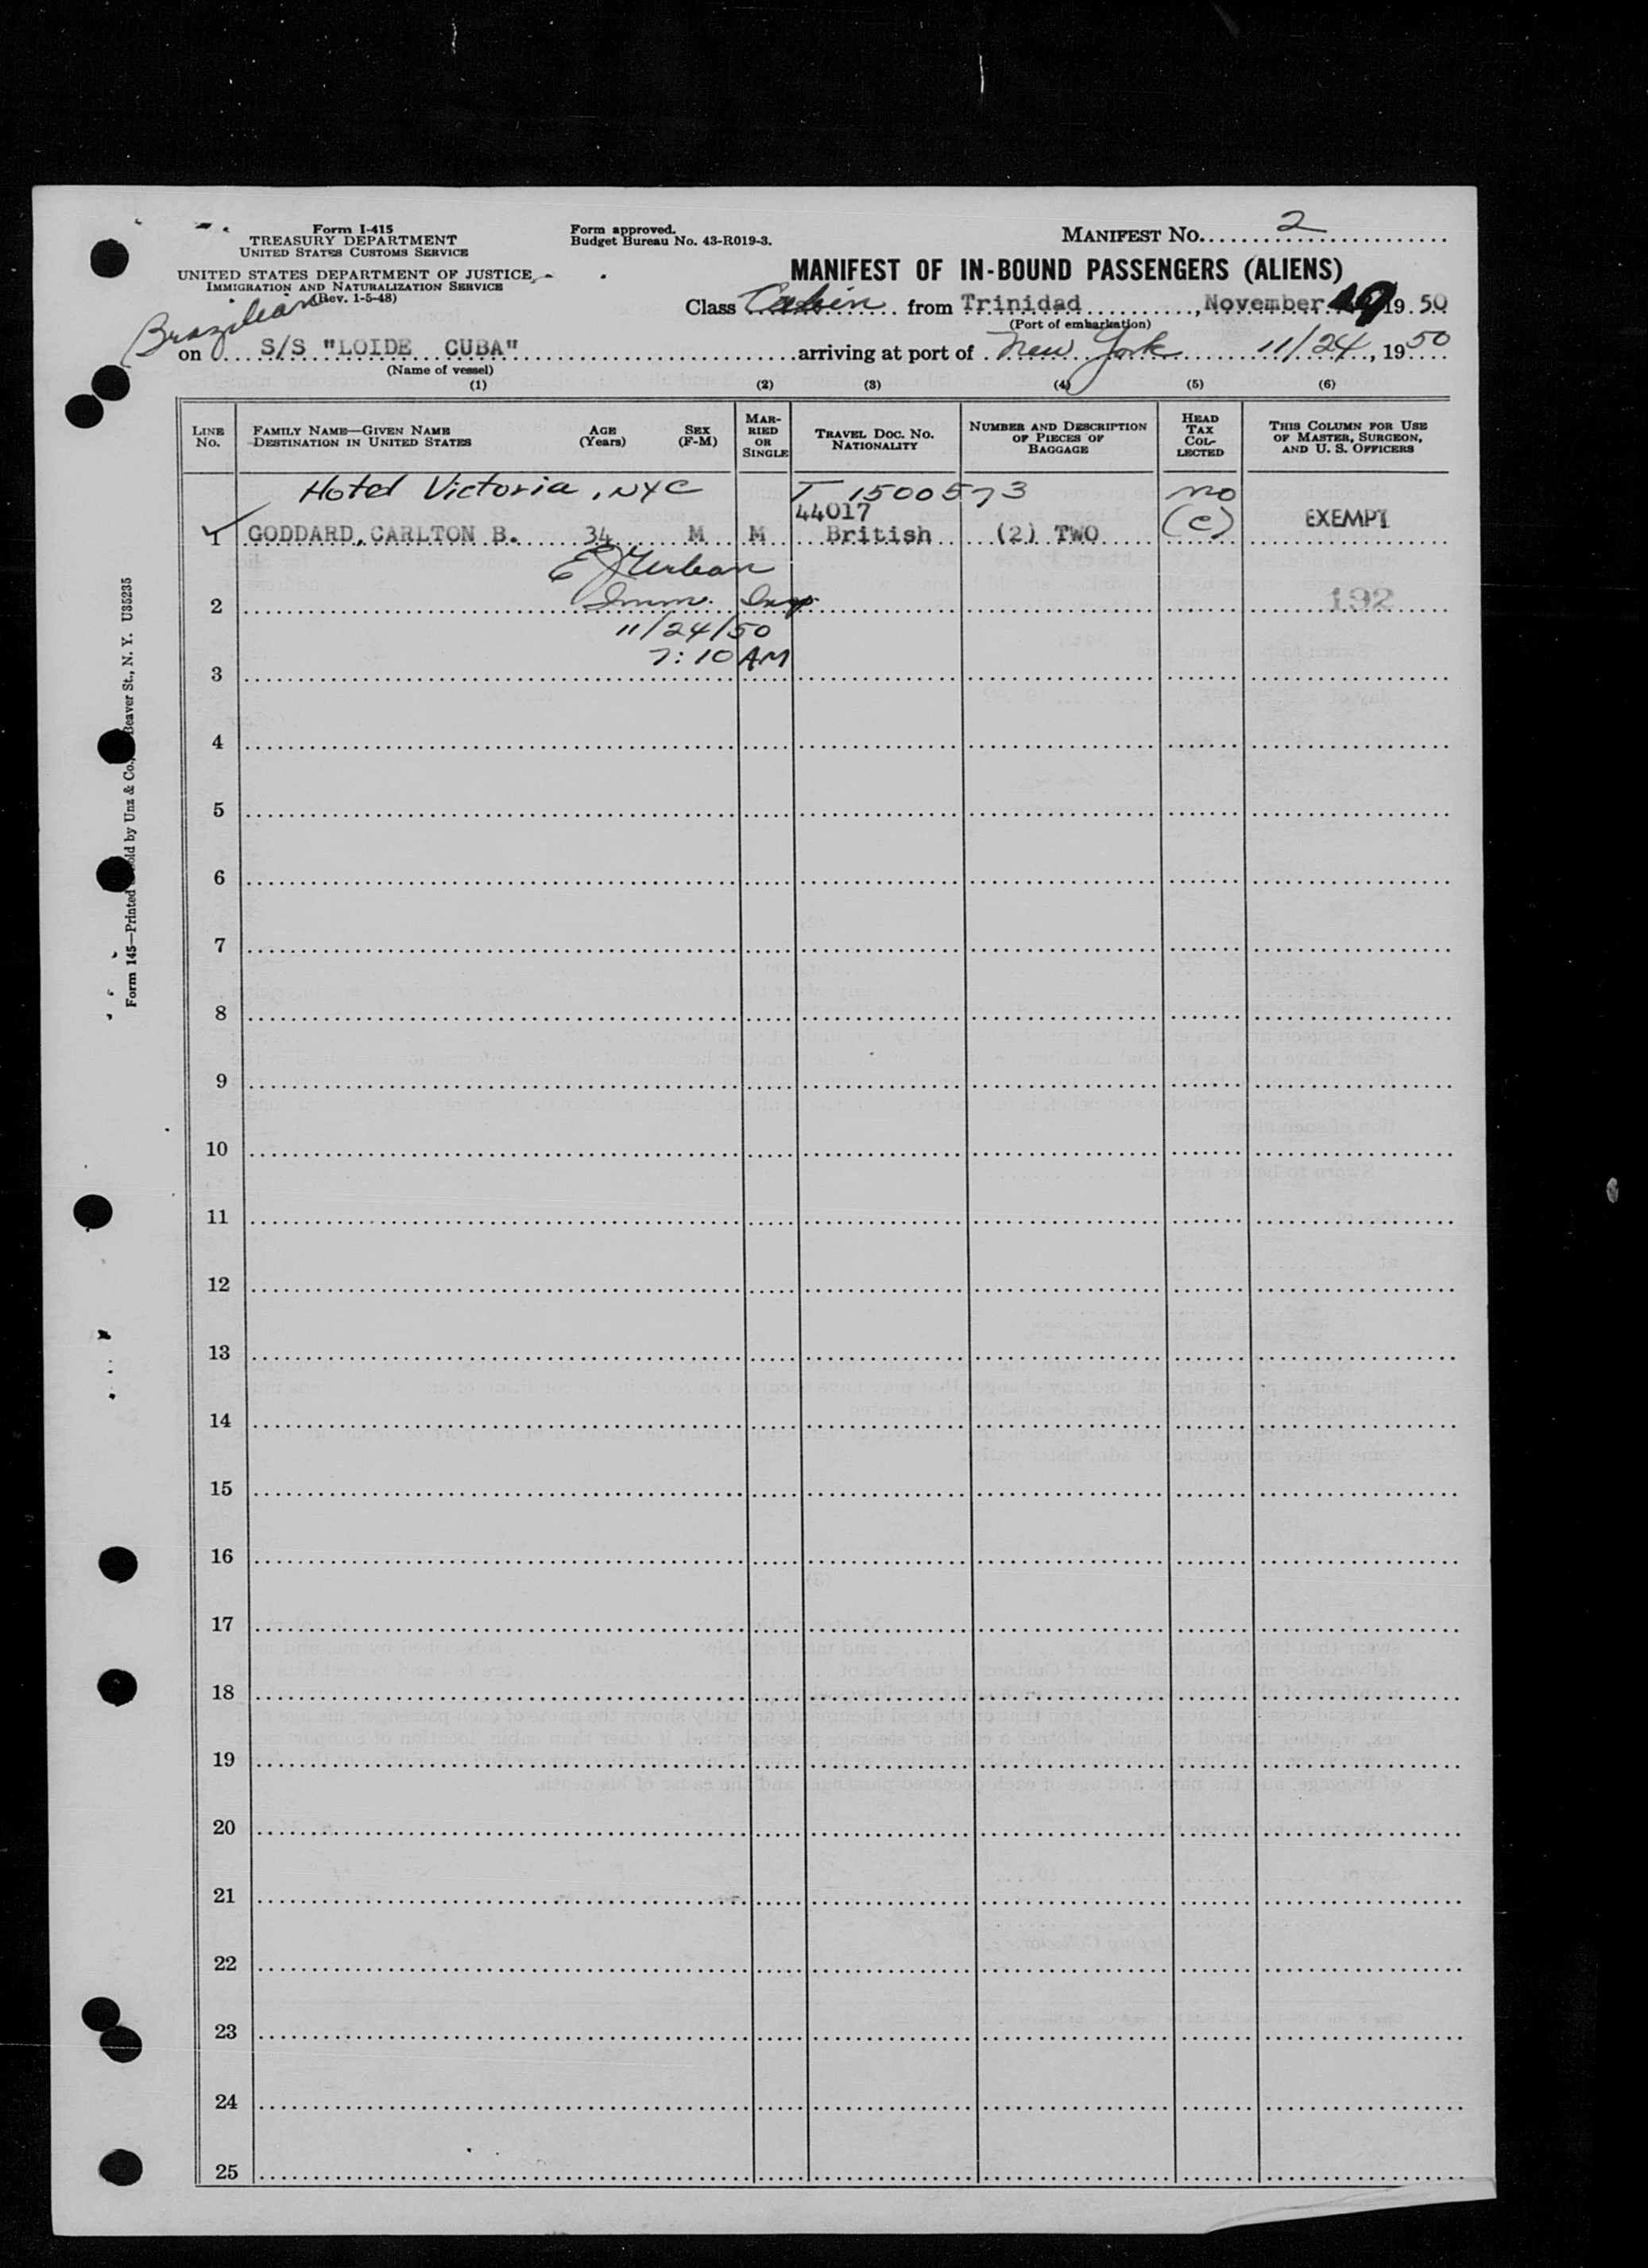 Form I-415
TREASURY DEPARTMENT
UNITED STATES CUSTOMS SERVICE
UNITED STATES DEPARTMENT OF JUSTICE
IMMIGRATION AND NATURALIZATION SERVICE
(Rev. 1-5-48)
Form approved.
Budget Bureau No. 43-R019-3.
MANIFEST NO. 2
MANIFEST OF IN-BOUND PASSENGERS (ALIENS)
Class Cabin from Trinidad, November 19 1950
(Port of embarkation)
Brazilian
on S/S "LOIDE CUBA" arriving at port of New York 11/24, 1950
(Name of vessel)
(1) (2) (3) (4) (5) (6)
LINE No. FAMILY NAME—GIVEN NAME DESTINATION IN UNITED STATES AGE (Years) SEX (F-M) MARRIED OR SINGLE TRAVEL DOC. NO. NATIONALITY NUMBER AND DESCRIPTION OF PIECES OF BAGGAGE HEAD TAX COLLECTED THIS COLUMN FOR USE OF MASTER, SURGEON, AND U. S. OFFICERS
Hotel Victoria, NYC T 1500573 no
44017 (c) EXEMPT
1 GODDARD, CARLTON B. 34 M M British (2) TWO
E J Urban
2 Imm. Insp. 192
11/24/50
7:10 AM
3
4
5
6
7
8
9
10
11
12
13
14
15
16
17
18
19
20
21
22
23
24
25
Beaver St., N. Y. U35235
Form 145—Printed sold by Unz & Co.